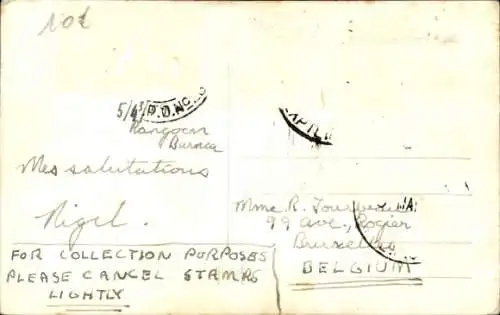 10t
P.D. NO.
Rangoon
Burma
Mes salutations
Nigel.
FOR COLLECTION PURPOSES
PLEASE CANCEL STAMPS
LIGHTLY
Mme R.
99 ave, Rogier
Bruxelles
BELGIUM